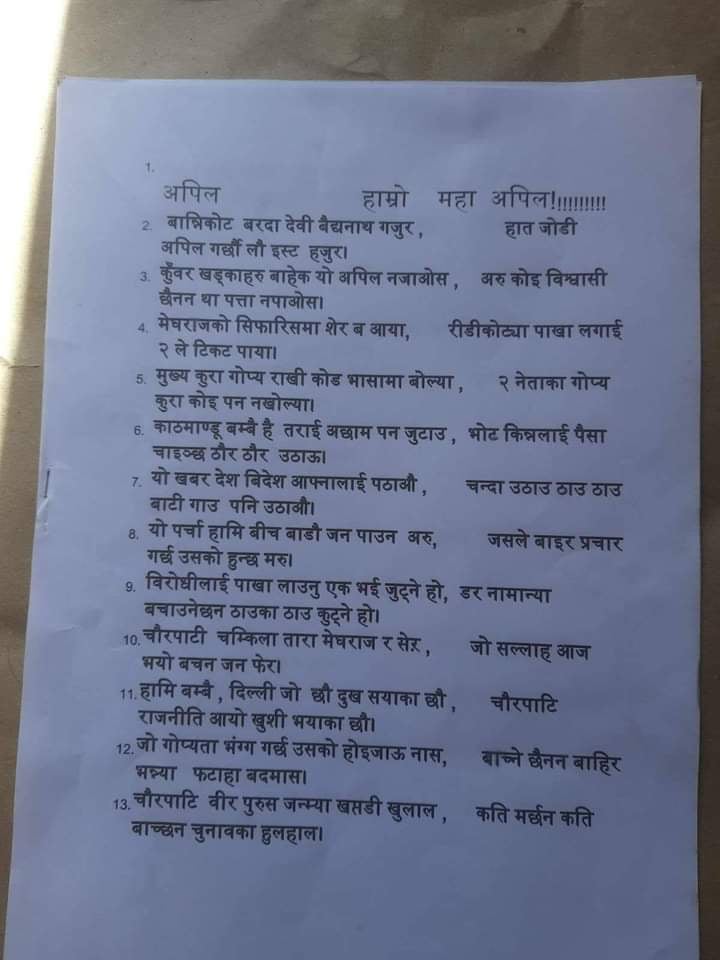 1.
अपिल हाम्रो महा अपिल!!!!!!!!!!
2. बान्निकोट बरदा देवी बैद्यनाथ गजुर , हात जोडी
अपिल गर्छौं लौ इस्ट हजुर।
3. कुँवर खड्काहरु बाहेक यो अपिल नजाओस , अरु कोइ बिश्वासी
छैनन था पत्ता नपाओस।
4. मेघराजको सिफारिसमा शेर ब आया, रीडीकोट्या पाखा लगाई
२ ले टिकट पाया।
5. मुख्य कुरा गोप्य राखी कोड भासामा बोल्या , २ नेताका गोप्य
कुरा कोइ पन नखोल्या।
6. काठमाण्डू बम्बै है तराई अछाम पन जुटाउ , भोट किन्नलाई पैसा
चाइञ्छ ठौर ठौर उठाऊ।
7. यो खबर देश बिदेश आफ्नालाई पठाऔ , चन्दा उठाउ ठाउ ठाउ
बाटी गाउ पनि उठाऔ।
8. यो पर्चा हामि बीच बाडौ जन पाउन अरु, जसले बाइर प्रचार
गर्छ उसको हुन्छ मरु।
9. विरोधीलाई पाखा लाउनु एक भई जुट्ने हो, डर नामान्या
बचाउनेछन ठाउका ठाउ कुट्ने हो।
10. चौरपाटी चम्किला तारा मेघराज र सेर , जो सल्लाह आज
भयो बचन जन फेर।
11. हामि बम्बै , दिल्ली जो छौ दुख सयाका छौ , चौरपाटि
राजनीति आयो खुशी भयाका छौ।
12. जो गोप्यता भंग्ग गर्छ उसको होइजाऊ नास, बाच्ने छैनन बाहिर
भन्न्या फटाहा बदमास।
13. चौरपाटि वीर पुरुस जन्म्या खप्तडी खुलाल , कति मर्छन कति
बाच्छन चुनावका हुलहाल।